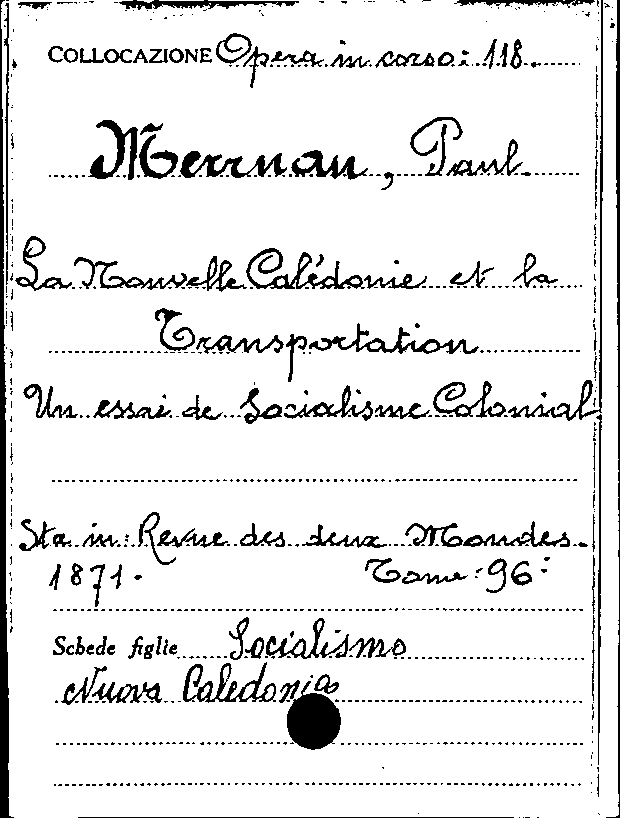 COLLOCAZIONE Opera in corso: 118.
Merrnau, Paul.
La Nouvelle Calédonie et la
Transportation
Un essai de Socialisme Colonial
Sta in: Revue des deux Mondes.
1871. Tome: 96:
Schede figlie Socialismo
Nuova Caledonia